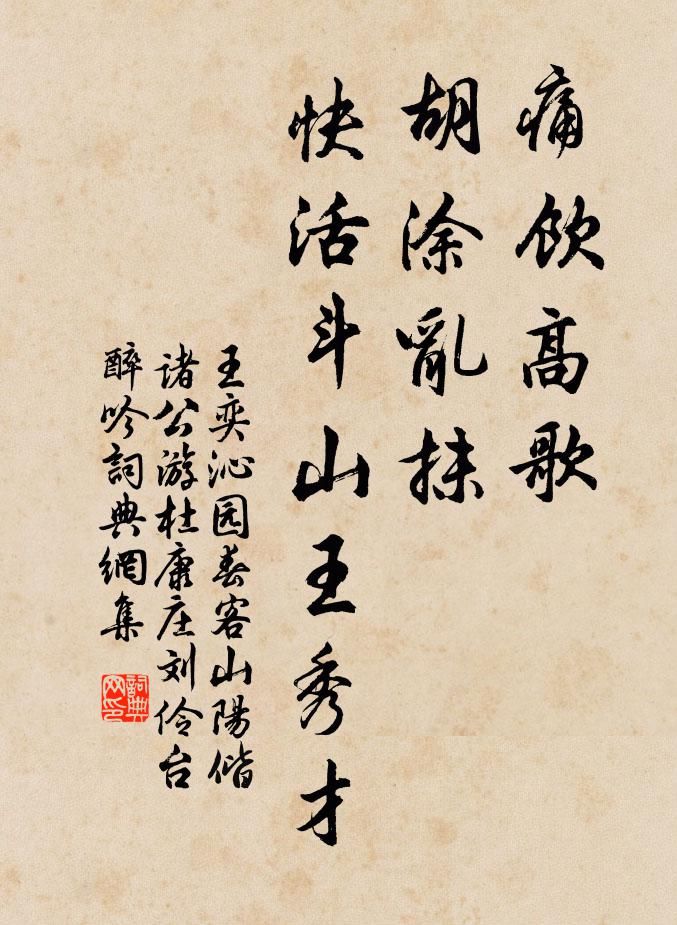 痛飲高歌
胡涂亂抹
快活斗山王秀才
王奕沁园春客山陽偕
诸公游杜康庄刘伶台
醉吟詞典網集
詞典网印